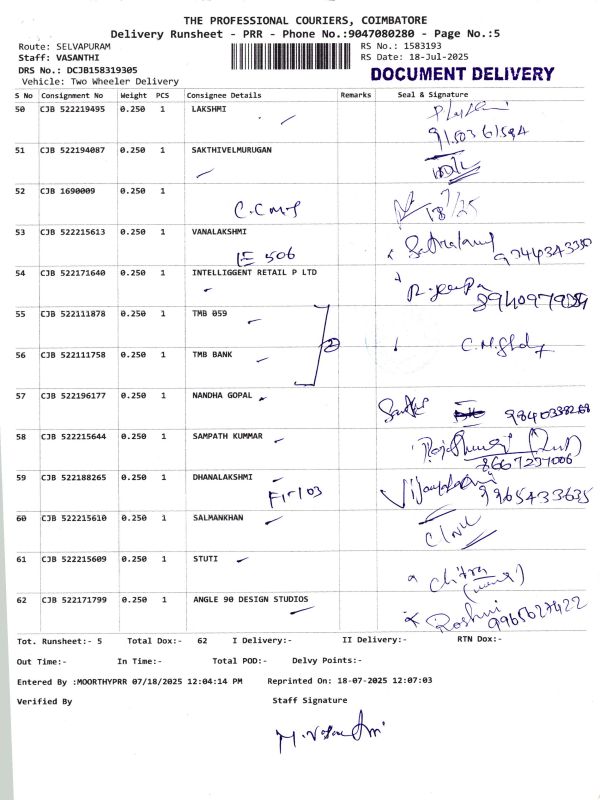 THE PROFESSIONAL COURIERS, COIMBATORE
Delivery Runsheet - PRR - Phone No.:9047080280 - Page No.:5
Route: SELVAPURAM
RS No.: 1583193
Staff: VASANTHI
RS Date: 18-Jul-2025
DRS No.: DCJB158319305
DOCUMENT DELIVERY
Vehicle: Two Wheeler Delivery
S No Consignment No Weight PCS Consignee Details Remarks Seal & Signature
50 CJB 522219495 0.250 1 LAKSHMI
51 CJB 522194087 0.250 1 SAKTHIVELMURUGAN
52 CJB 1690009 0.250 1
53 CJB 522215613 0.250 1 VANALAKSHMI
IE 506
54 CJB 522171640 0.250 1 INTELLIGGENT RETAIL P LTD
55 CJB 522111878 0.250 1 TMB 059
56 CJB 522111758 0.250 1 TMB BANK
57 CJB 522196177 0.250 1 NANDHA GOPAL
58 CJB 522215644 0.250 1 SAMPATH KUMMAR
8667237006
59 CJB 522188265 0.250 1 DHANALAKSHMI
9965433635
60 CJB 522215610 0.250 1 SALMANKHAN
61 CJB 522215609 0.250 1 STUTI
Chitra
62 CJB 522171799 0.250 1 ANGLE 90 DESIGN STUDIOS
Roshni 9965627422
Tot. Runsheet:- 5 Total Dox:- 62 I Delivery:- II Delivery:- RTN Dox:-
Out Time:- In Time:- Total POD:- Delvy Points:-
Entered By :MOORTHYPRR 07/18/2025 12:04:14 PM Reprinted On: 18-07-2025 12:07:03
Verified By Staff Signature